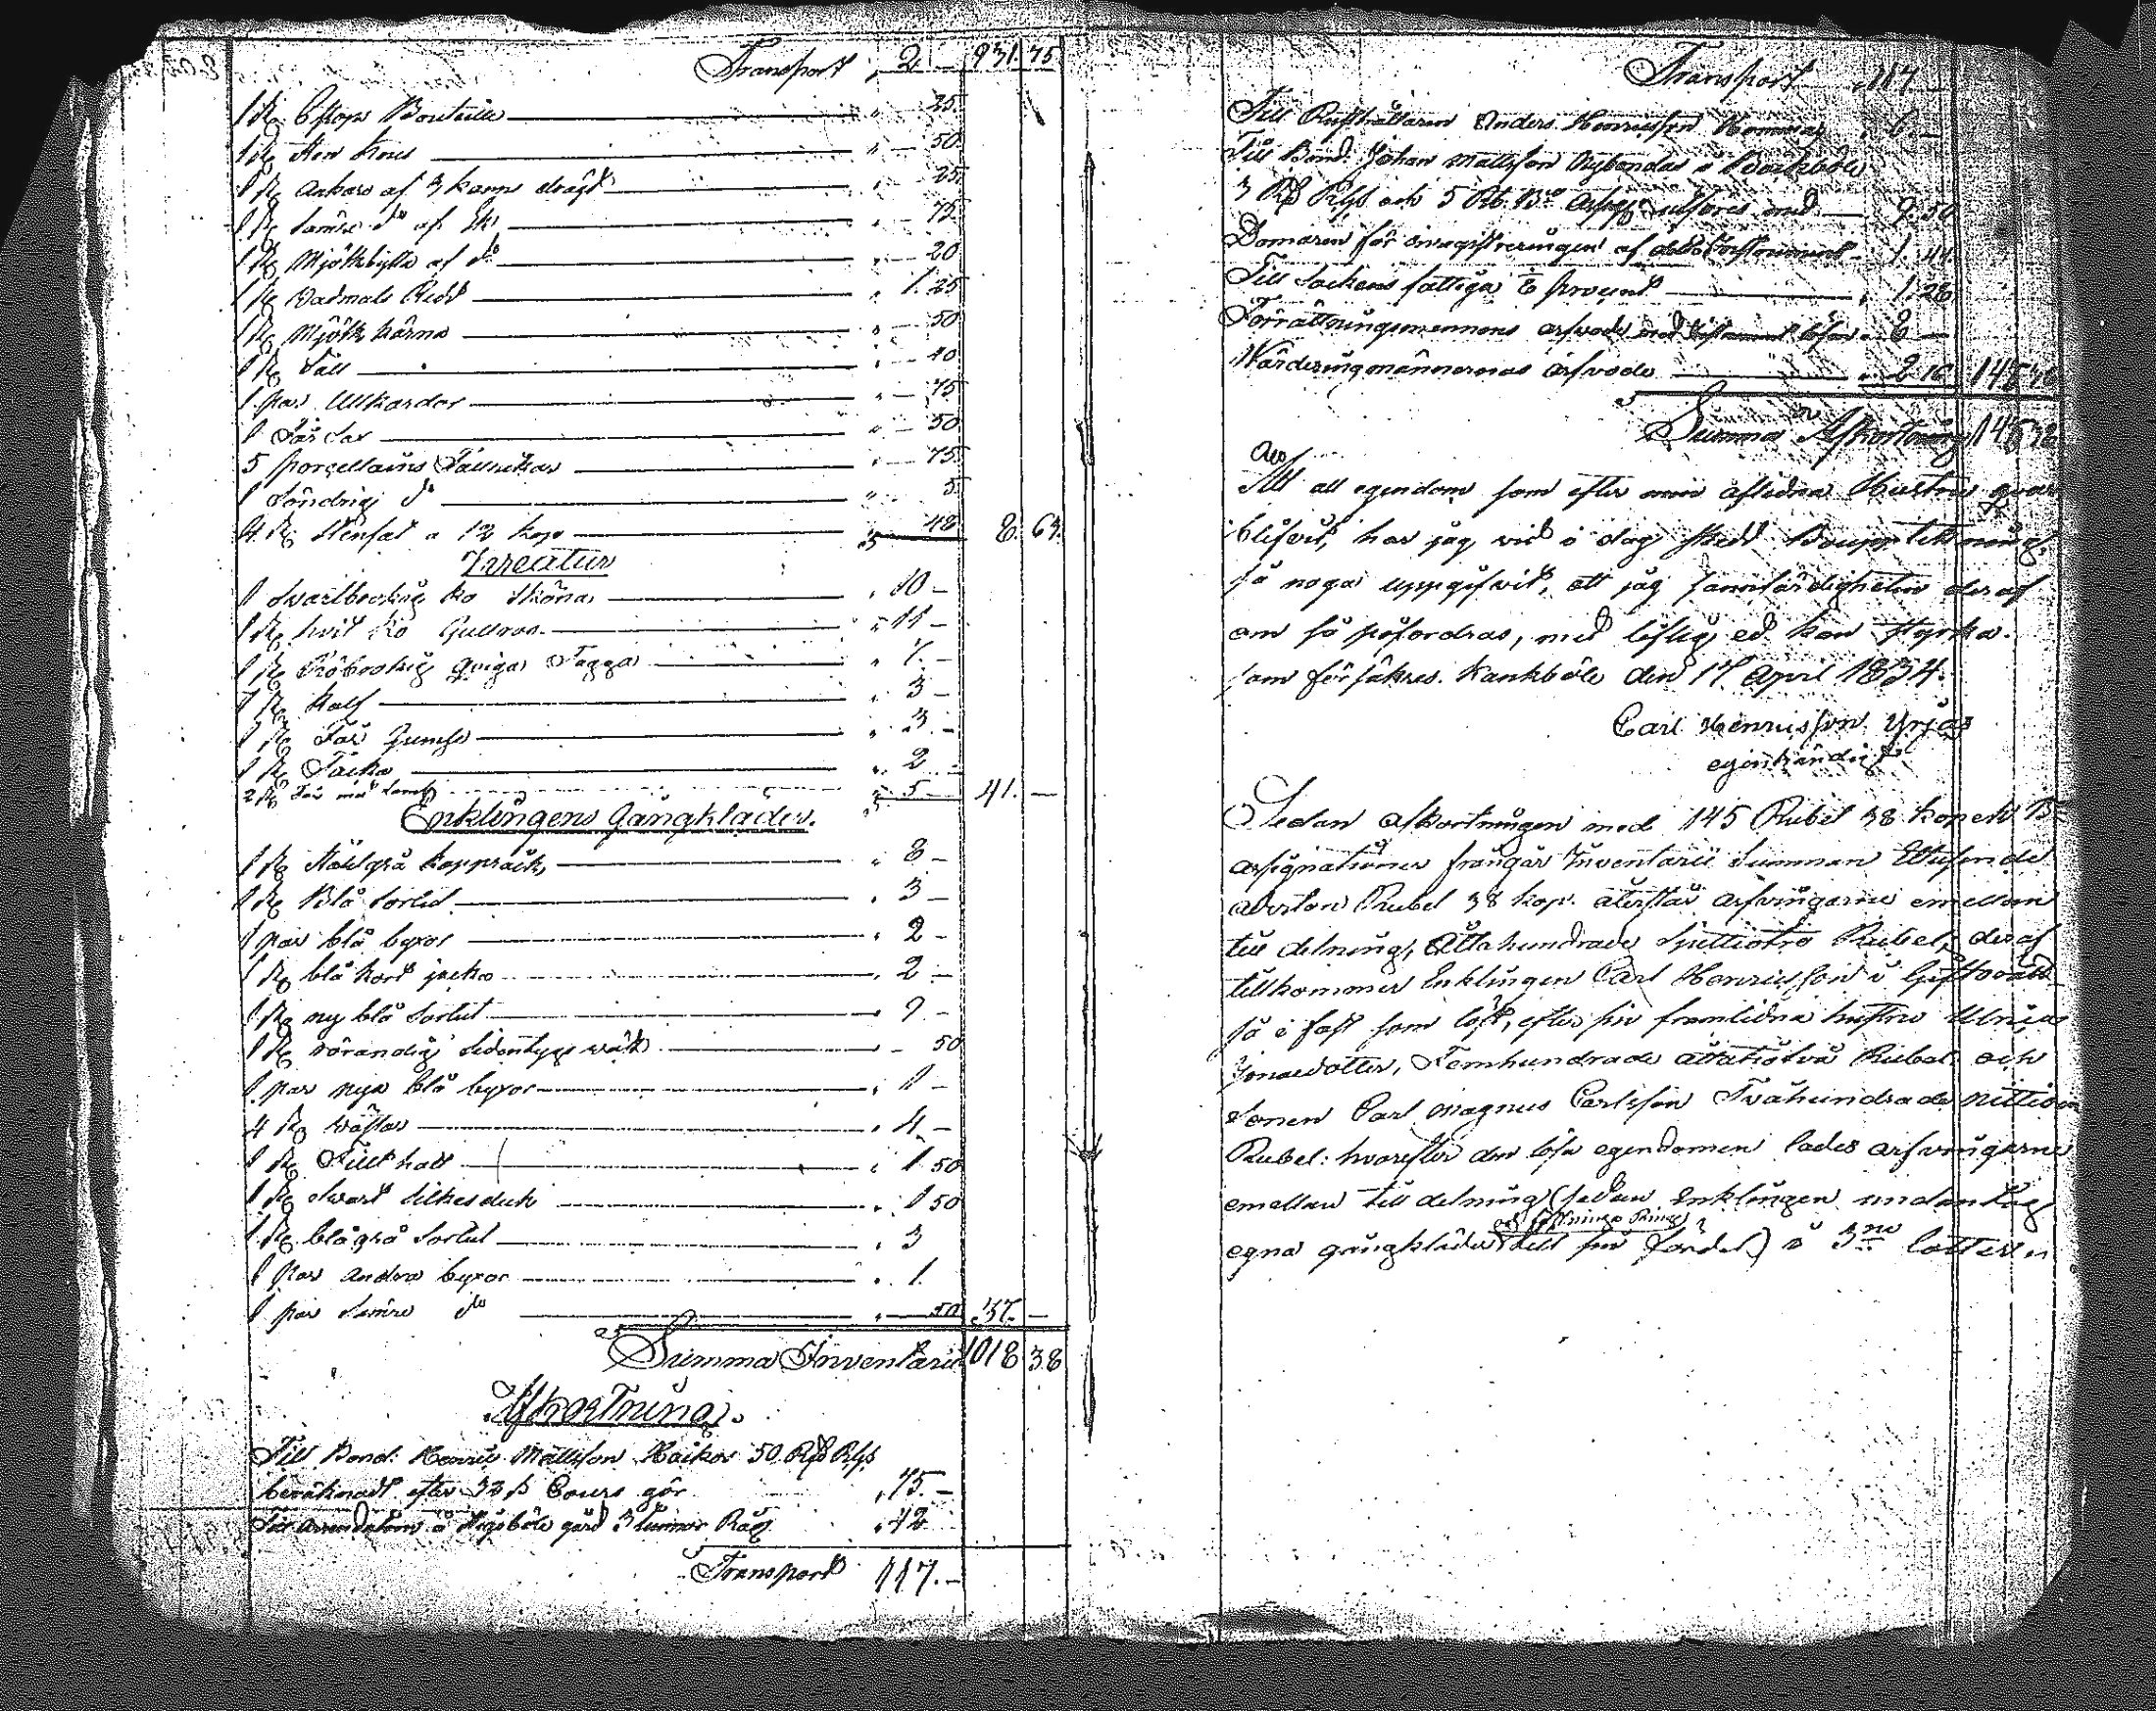 Transport " 2 — 931. 75
1 st. 6 stops Bouteille " — 25.
1 st. Sten krus " — 50.
1 st. ankare af 3 kannr drägt " — 25.
1 st. sämre do af Ek " — 75.
1 st. Mjölkbytta af do " — 20
1 st. Vadmals Redd " 1. 25
1 st. Mjölk kärna " — 50
1 st. Såll " — 40
1 par Ullkardor " — 75
1 Får Sax " — 50
5 porcellains Tallrikar " — 75.
1 Söndrig do " 5.
4 st. Stenfat a 12 kop " 48 8. 63.
Kreatur
1 Svartbrokig ko Sköna " 10 —
1 st. hvit ko Gullros " 11 —
1 st. Rödbrokig qviga Fagga " 7. —
1 st. Kalf " 3 —
1 st. Får Gumse " 3. —
1 st. Tacka " 2 —
2 st. Får med lamb " 5 — 41. —
Enklingens Gångkläder.
1 st. Stålgrå kapprack " 8 —
1 st. Blå Sortut " 3 —
1 par blå byxor " 2 —
1 st. blå kort jacka " 2 —
1 st. ny blå Sortut " 9. —
1 st. rörandig Sidentygs wäst — 50
1 par nya blå byxor " 1 —
4 st. wästar " 4 —
1 st. Filt hatt " 1 50
1 st. Svart Silkesduk " 1 50
1 st. blågrå Sortut " 3
1 par andra byxor " 1.
1 par Sämre do " — 50 37. —
Summa Inventarii 1018 38
Afkortning.
Till Bond. Henric Mattsson Haikos 50 Rd Rgs
beräknadt efter Cours gör " 75. —
gård 3 tunnor Råg " 42
Transport 117. —
Transport " 117 —
Till Rusthållaren Anders Henricsson Hommas " 6. —
Till Bond. Johan Mattsson Nybondas i
3 Rd Rgs och 5 Rb. Bco utföres med — 9. 50
Domaren för inregistreringen af detta — 1. 44
Till Sockens fattiga procent " 1. 28
Förrättningsmannens arfvode lösen " 8 —
Wärderingsmännernas arfvode " 2 16 145 38
Summa Afkortning 145 38
Att all egendom som efter min aflidna Hustru qvar
blifvit, har jag vid i dag skedd Bouppteckning,
så noga uppgifvit, att jag sannfärdigheten deraf
om så påfordras, med liflig ed kan styrka.
som försäkras. Kankböle den 17 April 1834.
Carl Henricsson Yrjas
egenhändigt
Sedan afkortningen med 145 Rubel 38 kopek B:co
assignationer frångår Inventarii Summan Ettusende
aderton Rubel 38 kop. återstår arfvingarne emellan
till delning, Åttahundrade Sjuttiotre Rubel; deraf
tillkommer Enklingen Carl Henricsson i Giftorätt
så i fast som löst, efter sin framlidna hustru Ulrica
Jonaedotter, Femhundrade åttatiotvå Rubel och
Sonen Carl Magnus Carlsson Tvåhundrade nittioen
Rubel: hvarefter den lösa egendomen lades arfvingarne
emellan till delning (sedan Enklingen undantog
och Fästninge Ring
egna gångkläder till sin fördel) i 3ne lotter